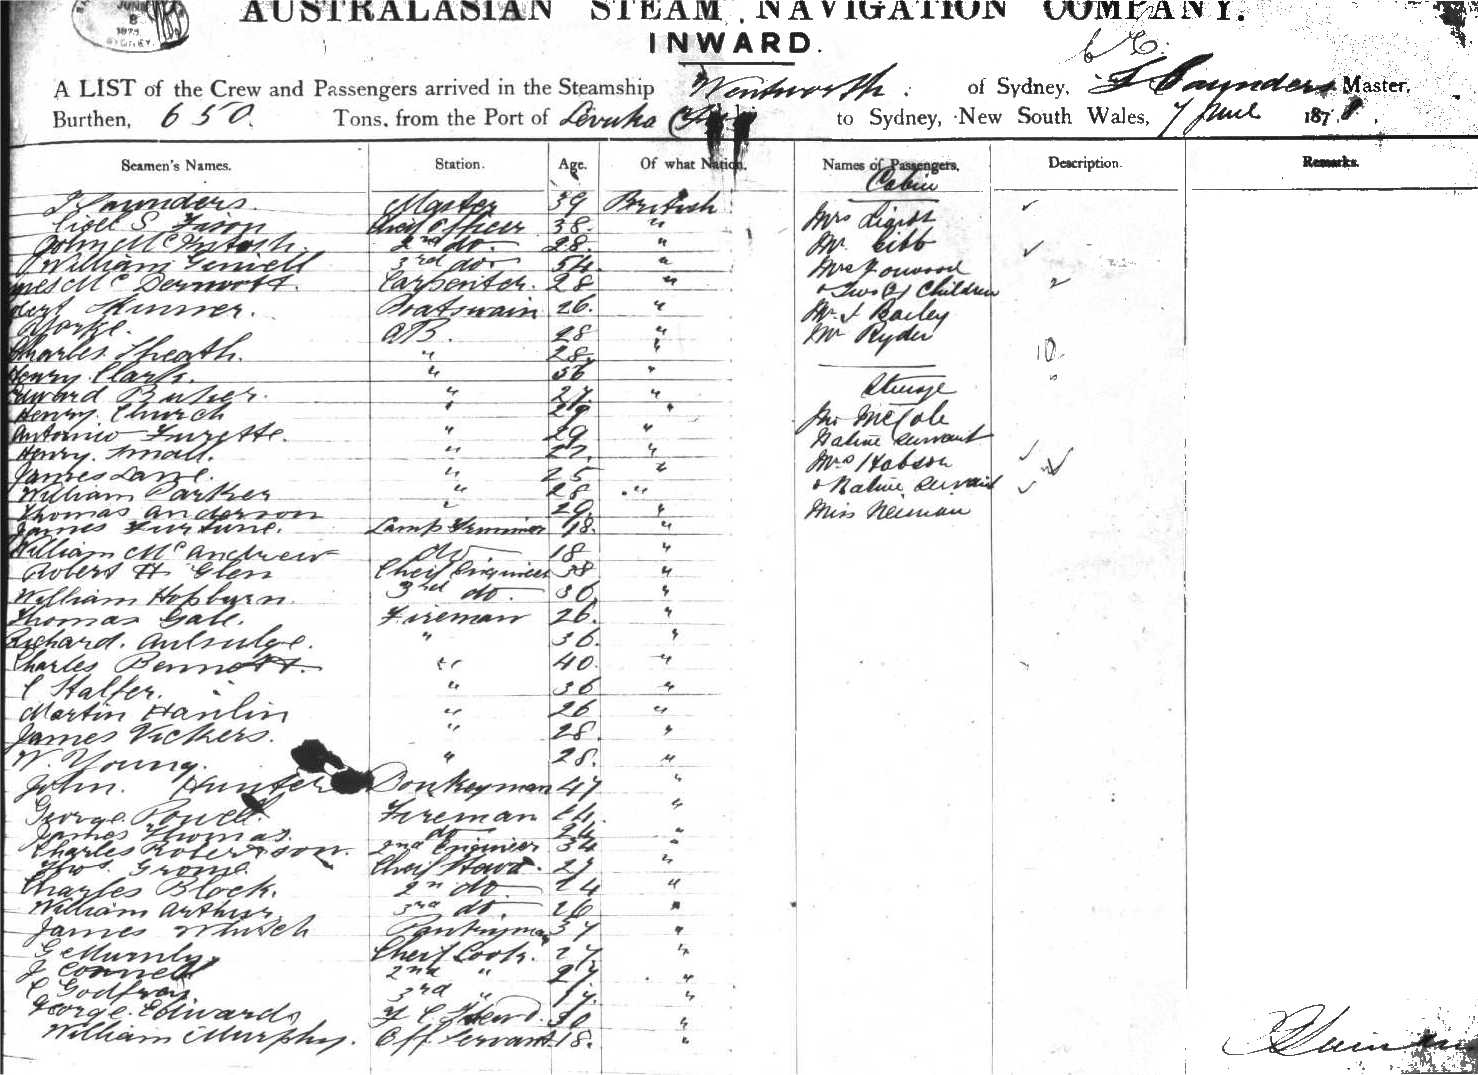 JUNE
8
1878
SYDNEY
AUSTRALASIAN STEAM NAVIGATION COMPANY.
INWARD.
A LIST of the Crew and Passengers arrived in the Steamship Wentworth. of Sydney, T Saunders Master,
Burthen, 650 Tons, from the Port of Levuka Fiji to Sydney, New South Wales, 7 June 1878.
Seamen's Names. Station. Age. Of what Nation. Names of Passengers. Description. Remarks.
Cabin
T Saunders. Master 39 British Mrs Light
S. Fison Cheif Officer 38 " Mr Gibb
John McIntosh. 2nd do. 28 " Mrs Horwood
William 3rd do 54 " + Two (2) Children 2
McDermott. Carpenter. 28 " Mr J Bailey
Skinner. Boatswain 26. " Mr Ryder
Yorke. AB. 28 "
Charles Sheath. " 28. " 10
Henry Clark. " 56 "
Steerage
Edward Butler. " 27. "
Henry Church " 29 " Mr McCole
Antonio Furette. " 29 " Native Servant
Henry. Small. " 27. " Mrs Hobson
James Lane. " 25 " + Native Servant
William Parker " 28 " Miss Neiman
Thomas Anderson " 29. "
James Furtune. Lamp Trimmer 18. "
William McAndrew do 18 "
Robert H Glen Cheif Engineer 38 "
William Hopburn. 3rd do. 30 "
Thomas Gale. Fireman 26. "
Richard. " 36. "
Charles Bennett. " 40. "
C Halfer. " 36 "
Martin Hanlin " 26 "
James Vickers. " 28. "
W. Young. " 28. "
John. Hunter Donkeyman 47 "
George. Powell. Fireman 24. "
James Thomas. do 24 "
Charles Robertson. 2nd Engineer 34 "
Thos. Grome. Cheif Stewd. 27 "
Charles Block. 2nd do 24 "
William Arthur. 3rd do. 26 "
James Pantryman 37 "
G Cheif Cook. 27. "
J Connell 2nd " 27 "
C Godfrey 3rd " 17. "
George. Edwards F C Stewd. 30 "
William Murphy. Off Servant. 18. "